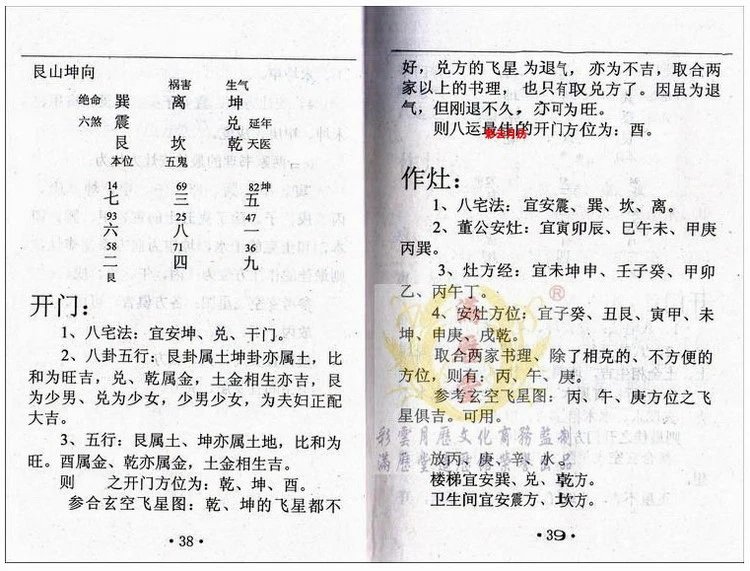 艮山坤向
祸害 生气
绝命 巽 离 坤
六煞 震 兑 延年
艮 坎 乾 天医
本位 五鬼
14 69 82坤
七 三 五
93 25 47
六 八 一
58 71 36
二 四 九
艮
开门：
1、八宅法：宜安坤、兑、干门。
2、八卦五行：艮卦属土坤卦亦属土，比
和为旺吉，兑、乾属金，土金相生亦吉，艮
为少男、兑为少女，少男少女，为夫妇正配
大吉。
3、五行：艮属土、坤亦属土地，比和为
旺。酉属金、乾亦属金，土金相生吉。
则 之开门方位为：乾、坤、酉。
参合玄空飞星图：乾、坤的飞星都不
·38·
好，兑方的飞星为退气，亦为不吉，取合两
家以上的书理，也只有取兑方了。因虽为退
气，但刚退不久，亦可为旺。
则八运最佳的开门方位为：酉。
作灶：
1、八宅法：宜安震、巽、坎、离。
2、董公安灶：宜寅卯辰、巳午未、甲庚
丙巽。
3、灶方经：宜未坤申、壬子癸、甲卯
乙、丙午丁。
4、安灶方位：宜子癸、丑艮、寅甲、未
坤、申庚、戌乾。
取合两家书理、除了相克的、不方便的
方位，则有：丙、午、庚。
参考玄空飞星图：丙、午、庚方位之飞
星俱吉。可用。
彩雲月歷文化商務監制
放丙、庚、辛、水。
楼梯宜安巽、兑、乾方。
卫生间宜安震方、坎方。
·39·
®